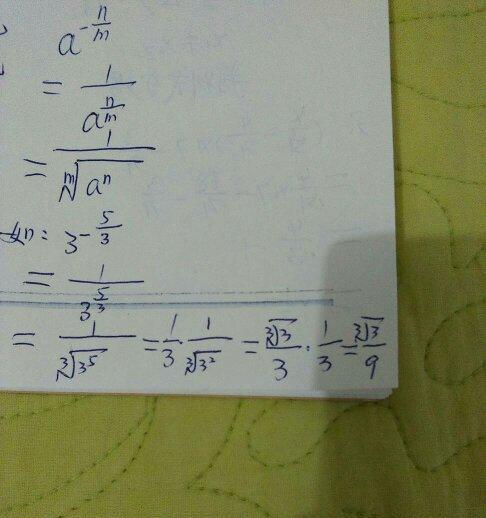 a^{-\frac{n}{m}}
= \frac{1}{a^{\frac{n}{m}}}
= \frac{1}{\sqrt[m]{a^n}}
如: 3^{-\frac{5}{3}}
= \frac{1}{3^{\frac{5}{3}}}
= \frac{1}{\sqrt[3]{3^5}} = \frac{1}{3} \cdot \frac{1}{\sqrt[3]{3^2}} = \frac{\sqrt[3]{3}}{3} \cdot \frac{1}{3} = \frac{\sqrt[3]{3}}{9}